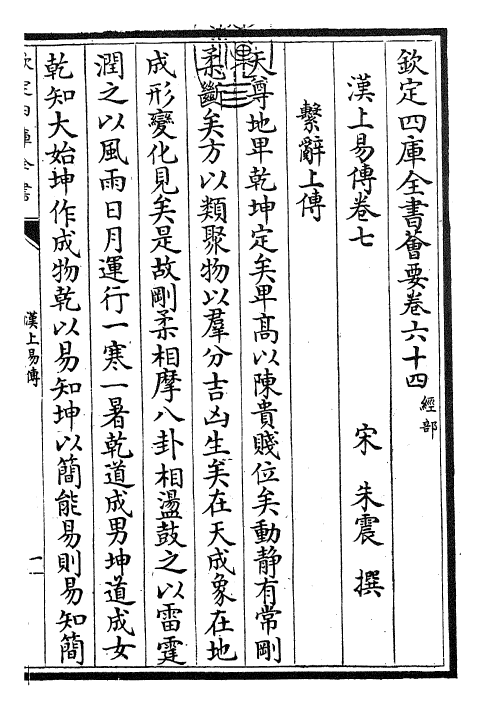 欽定四庫全書薈要卷六十四 經部
漢上易傳卷七
宋 朱震 撰
繫辭上傳
天尊地卑乾坤定矣卑髙以陳貴賤位矣動靜有常剛
柔斷矣方以類聚物以羣分吉凶生矣在天成象在地
成形變化見矣是故剛柔相摩八卦相盪鼓之以雷霆
潤之以風雨日月運行一寒一暑乾道成男坤道成女
乾知大始坤作成物乾以易知坤以簡能易則易知簡
欽定四庫全書
漢上易傳
一